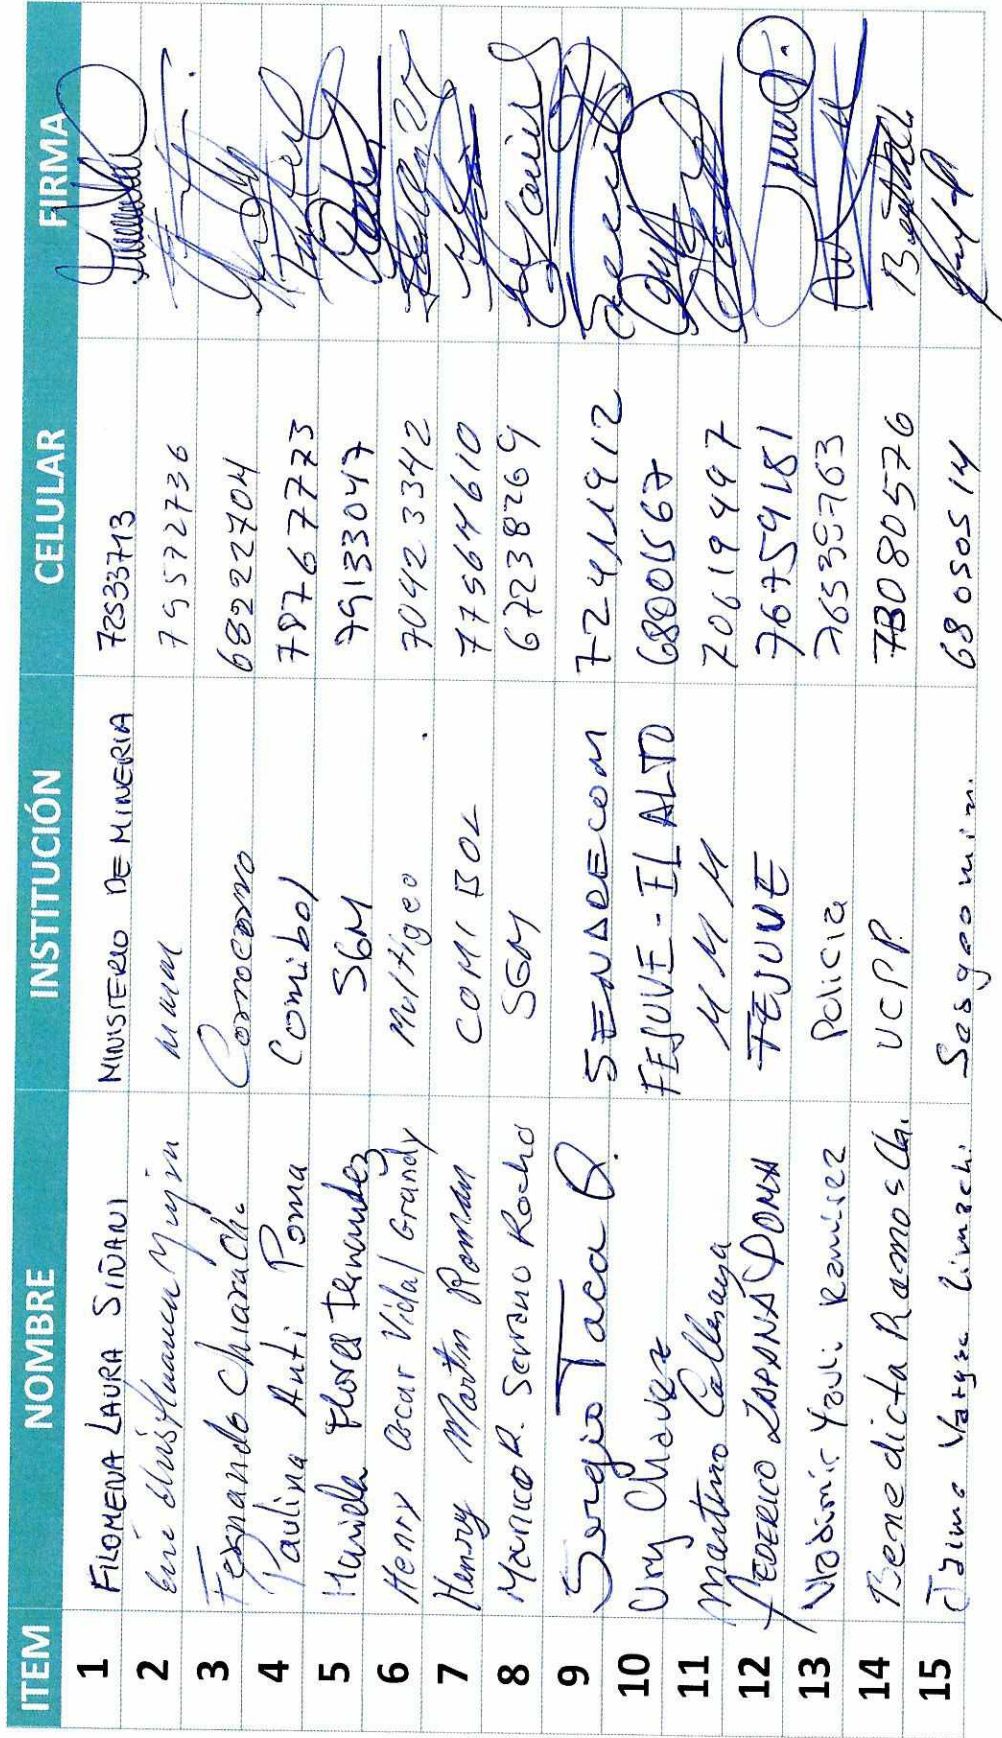 ITEM NOMBRE INSTITUCIÓN CELULAR FIRMA
1 FILOMENA LAURA SIÑANI MINISTERIO DE MINERIA 72533713
2 79572736
3 Fernando Chiara Ch. Corocoro 68222704
4 Paulina Anti Poma Comibol 78767773
5 Mariela Flores Fernandez SGM 79133047
6 Henry Oscar Vidal Grandy Multigeo 70423342
7 Henry Martin Roman COMIBOL 77564610
8 Marico R. Serrano Rocha SGM 67238269
9 Sergio Taca Q. SENARECOM 72411912
10 Ury Chavez FEJUVE - EL ALTO 68001567
11 Martino Callisaya M M M 70619497
12 FEDERICO ZAPANA POMA FEJUVE 76759181
13 Vladimir Yauli Ramirez Policia 76535763
14 Benedicta Ramos Ch. UCPP 78080576
15 Jaime Vargas Limachi Sergeomin. 68050514